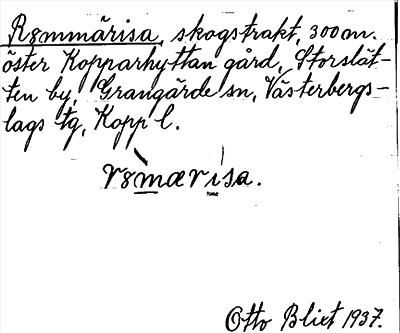 Rømmärisa, skogstrakt, 300 m.
öster Kopparhyttan gård, Storslät-
ten by, Grangärde sn, Västerbergs-
lags tg, Kopp l.
r8mærisa.
Otto Blixt 1937.